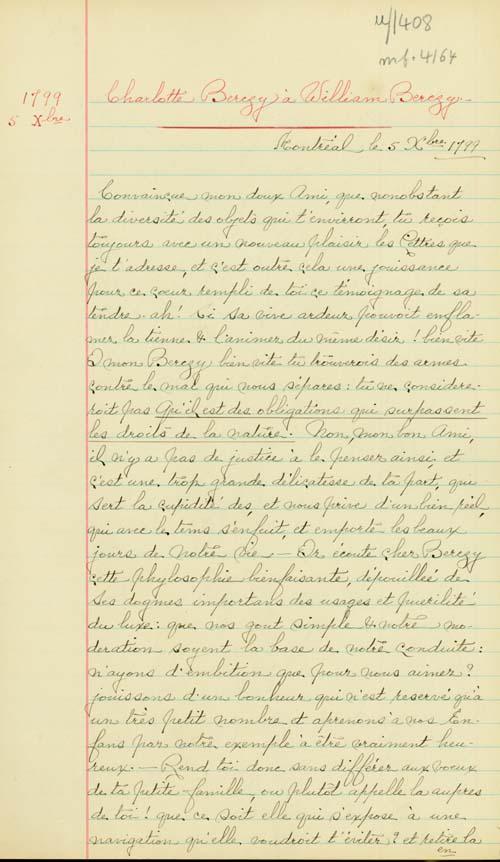 u/1408
mf. 4164
1799
5 Xbre
Charlotte Berczy à William Berczy.
Montréal le 5 Xbre 1799
Convaincue mon doux Ami, que nonobstant
la diversité des objets qui t'envirront, tu reçois
toujours avec un nouveau plaisir les Lettres que
je t'adresse, et c'est outre cela une jouissance
pour ce coeur rempli de toi ce témoignage de sa
tendre. ah! si sa vive ardeur pouvoit enfla-
mer la tienne & l'animer du même désir! bien vite
O mon Berczy bien vite tu trouverois des armes
contre le mal qui nous sépares: tu ne considere-
roit pas Qu'il est des obligations qui surpassent
les droits de la nature. Non, mon bon Ami,
il n'y a pas de justice à le penser ainsi, et
c'est une trop grande délicatesse de ta part, qui
sert la cupidité des, et nous prive d'un bien réel,
qui avec le tems s'enfuit, et emporte les beaux
jours de notre vie — Or écoute cher Berczy
cette phylosophie bienfaisante, dépouillée de
ses dogmes importans des usages et puerilité
du luxe: que nos gout simple & notre mo-
deration soyent la base de notre conduite:
n'ayons d'embition que pour nous aimer?
jouissons d'un bonheur qui n'est reservé qu'à
un très petit nombre et aprenons a nos En-
fans par notre exemple à être vraiment heu-
reux. — Rend toi donc sans différer aux voeux
de ta petite famille, ou plutôt appelle la aupres
de toi! que ce soit elle qui s'expose à une
navigation qu'elle voudroit t'éviter? et retire la
en